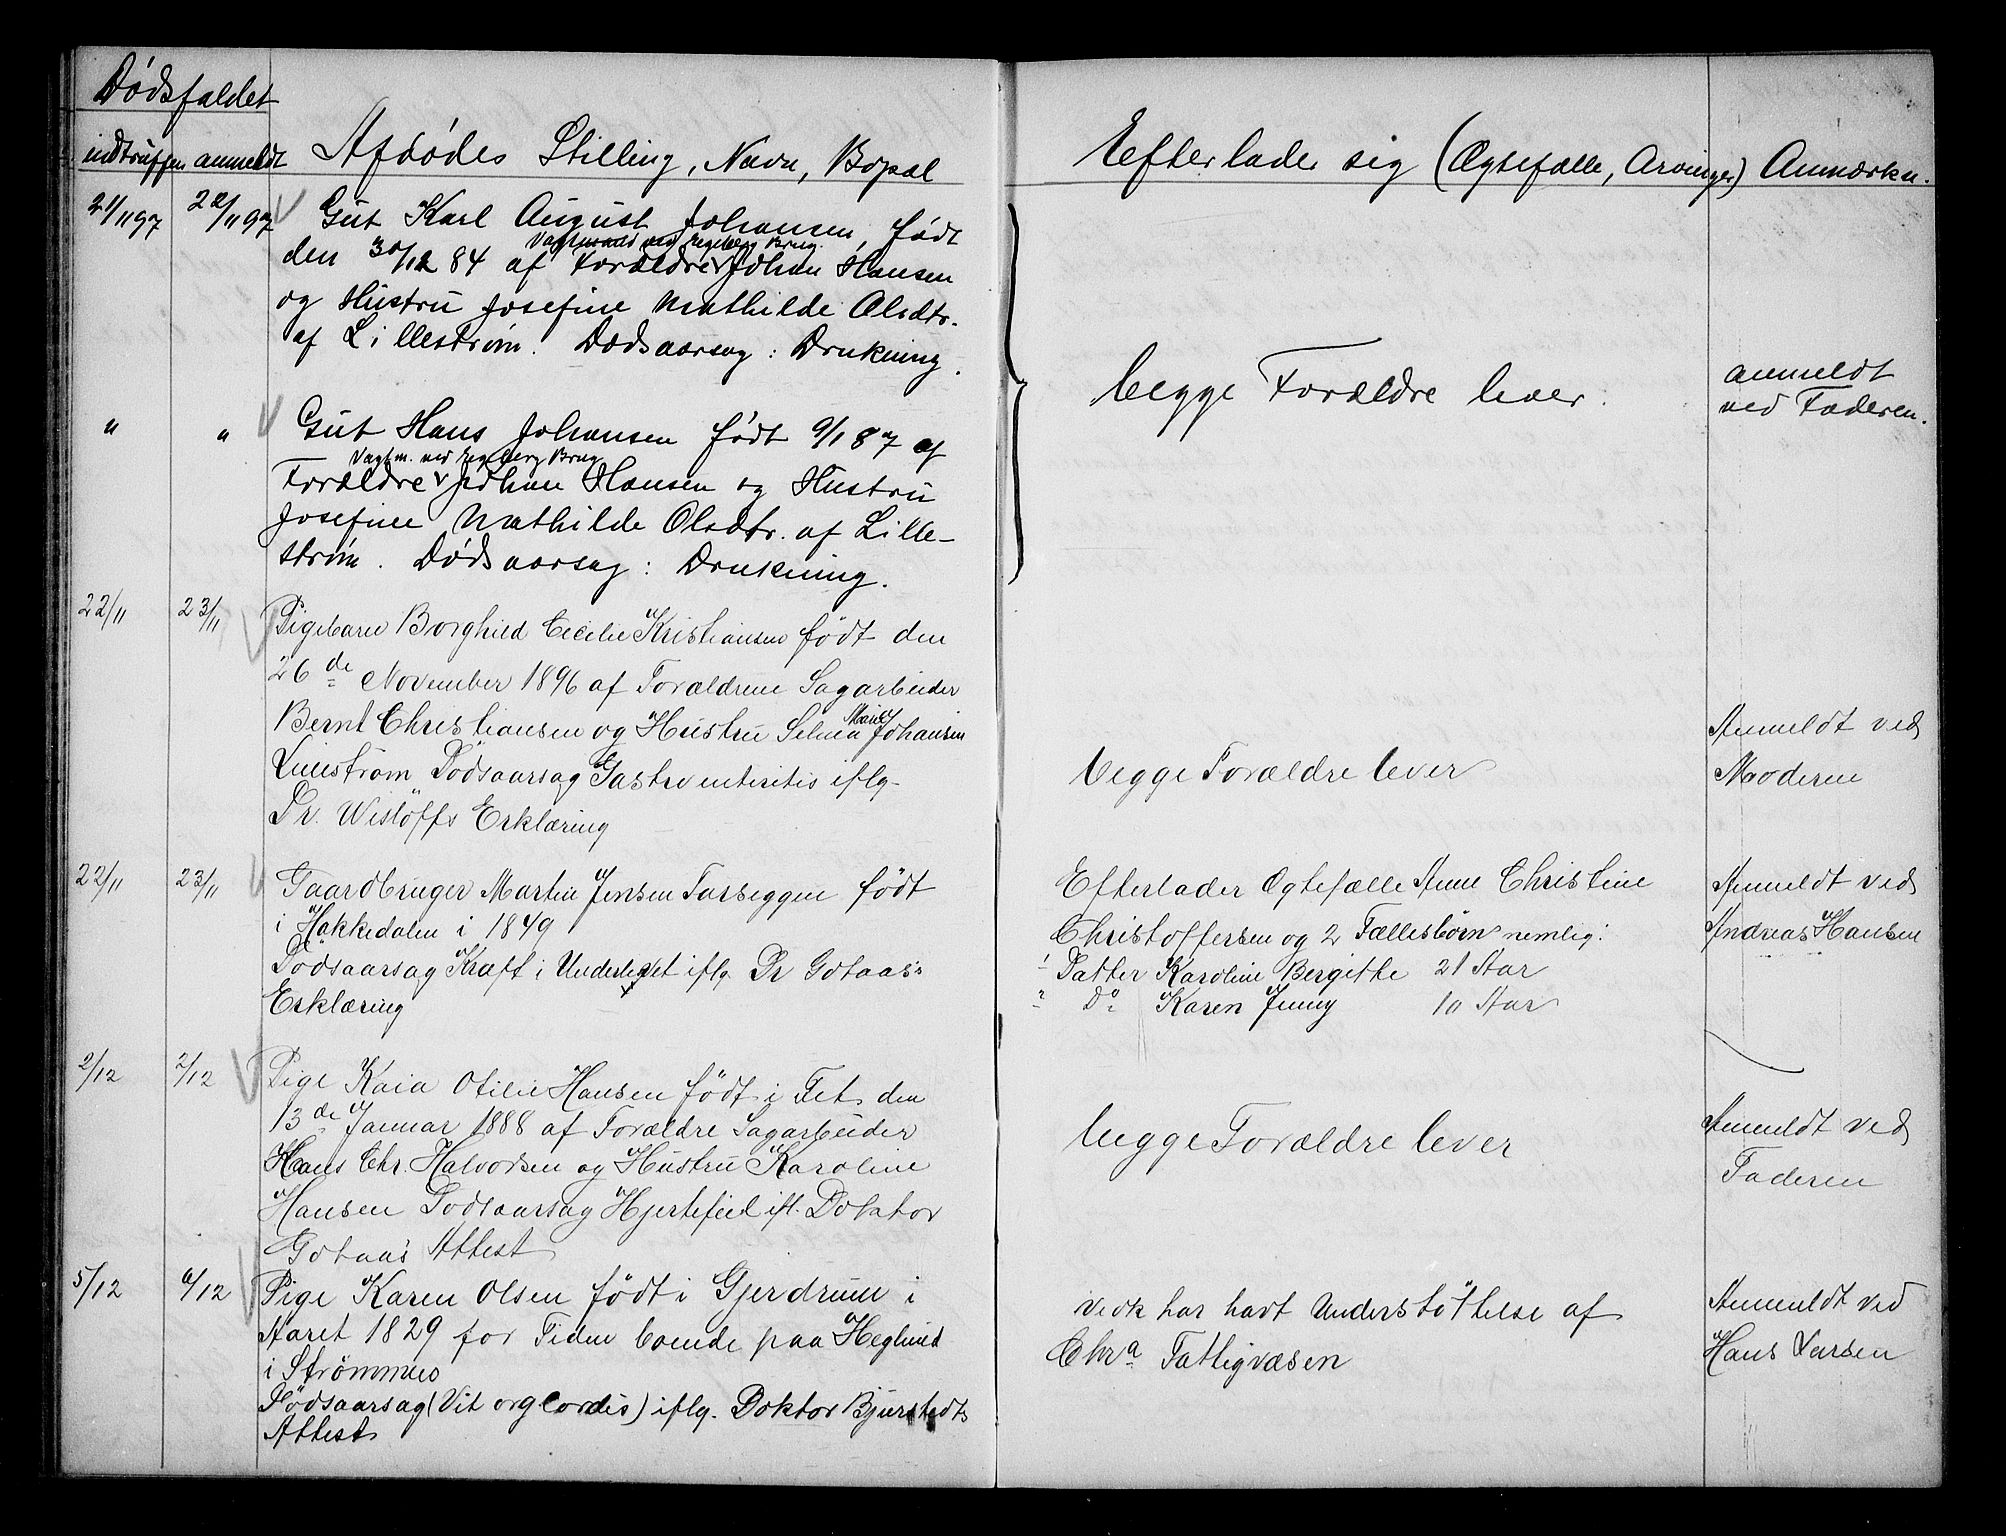 Dødsfaldet
indtruffen anmeldt Afdødes Stilling, Navn, Bopæl
21/11 97 22/11 97 Gut Karl August Johansen, født
Vagtmand ved Egeberg Brug
den 30/12 84 af Forældre Johan Hansen
og Hustru Josefine Mathilde Olsdtr.
af Lillestrøm. Dødsaarsag: Drukning.
" " Gut Hans Johansen født 9/1 87 af
Vagtm. ved Egeberg Brug
Forældre Johan Hansen og Hustru
Josefine Mathilde Olsdtr. af Lille-
strøm. Dødsaarsag: Drukning.
22/11 23/11 Pigebarn Borghild Cecilie Kristiansen født den
26de November 1896 af Forældrene Sagarbeider
Marie
Bernt Christiansen og Hustru Selma Johansen
Lillestrøm Dödsaarsag Gastroenteritis iflg.
Dr. Wislöffs Erklæring
22/11 23/11 Gaardbruger Martin Jensen Farseggen født
i Hakkedalen i 1849
Dödsaarsag Kræft i Underlivet iflg. Dr Gotaas's
Erklæring
2/12 2/12 Pige Kaia Otilie Hansen født i Fet den
13de Januar 1888 af Forældre Sagarbeider
Hans Chr. Halvorsen og Hustru Karoline
Hansen Dödsaarsag Hjertefeil ifl. Doktor
Gotaas Attest
5/12 6/12 Pige Karen Olsen født i Gjerdrum i
Aaret 1829 for Tiden boende paa Heglund
i Strömmen
Dödsaarsag (Vit org cordis) iflg. Doktor Bjurstedts
Attest
Efterlader sig (Ægtefælle, Arvinger) Anmærkn.
begge Forældre lever.
anmeldt
ved Faderen.
begge Forældre lever
Anmeldt ved
Moderen
Efterlader Ægtefælle Anne Christine
Christoffersen og 2 Fællesbörn nemlig:
1 Datter Karoline Bergitte 21 Aar
2 Do Karen Jenny 10 Aar
Anmeldt ved
Andreas Hansen
begge Forældre lever
Anmeldt ved
Faderen
Vedk har havt Understöttelse af
Chra Fattigvæsen
Anmeldt ved
Hans Larsen